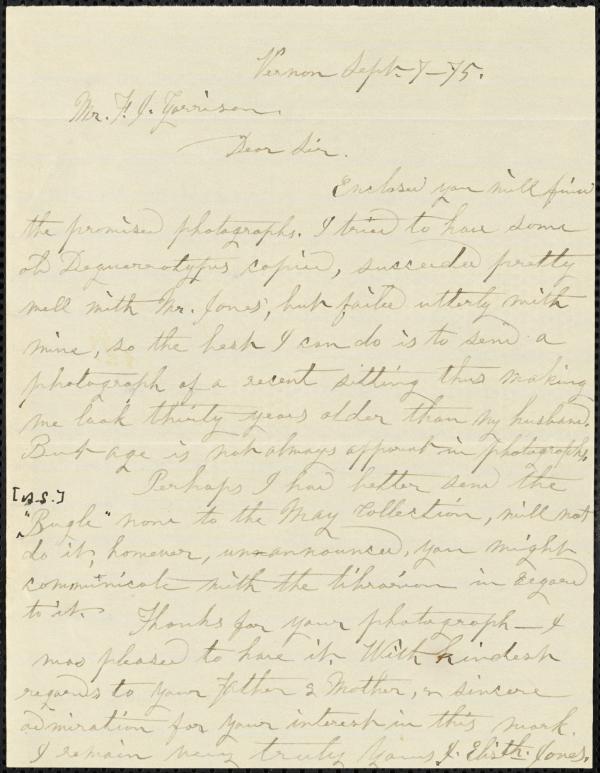 Vernon Sept. 7–75.
Mr. F. J. Garrison.
Dear Sir.
Enclosed you will find
the promised photographs. I tried to have some
old Deguareotypes copied, succeeded pretty
well with Mr. Jones', but failed utterly with
mine, so the best I can do is to send a
photograph of a recent sitting thus making
me look thirty years older than my husband.
But age is not always apparent in photographs.
Perhaps I had better send the
[A.S.]
"Bugle" now to the May Collection, will not
do it, however, un-announced, you might
communicate with the librarian in regard
to it. Thanks for your photograph – I
was pleased to have it. With kindest
regards to your Father & Mother, & sincere
admiration for your interest in this work.
I remain very truly Yours J. Elisth. Jones.